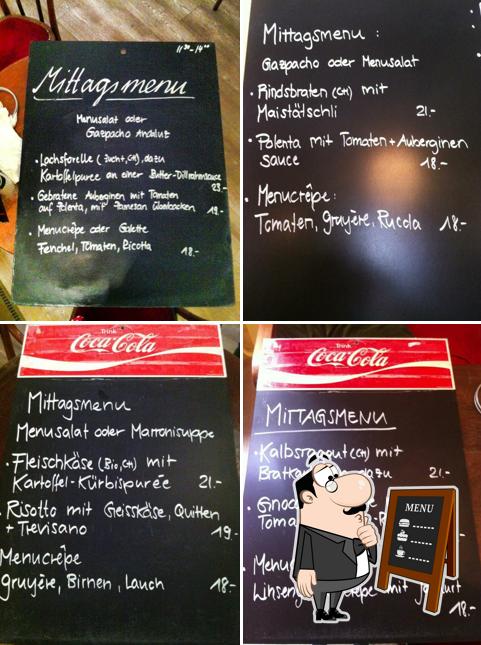 11³⁰-14⁰⁰
Mittagsmenu
Menusalat oder
Gazpacho Andaluz
• Lachsforelle (Zucht, CH), dazu
Kartoffelpuree an einer Butter-Dillrahmsauce
23.-
• Gebratene Auberginen mit Tomaten
auf Polenta, mit Parmesan überbacken 19.-
• Menucrêpe oder Galette
Fenchel, Tomaten, Ricotta 18.-
Mittagsmenu :
Gazpacho oder Menusalat
• Rindsbraten (CH) mit
Maistätschli 21.-
• Polenta mit Tomaten + Auberginen
sauce 18.-
• Menucrêpe :
Tomaten, gruyère, Rucola 18.-
Trink
Coca-Cola
Mittagsmenu
Menusalat oder Marronisuppe
• Fleischkäse (Bio, CH) mit
Kartoffel-Kürbispurée 21.-
• Risotto mit Geisskäse, Quitten
+ Trevisano 19.-
Menucrêpe
gruyère, Birnen, Lauch 18.-
Trink
Coca-Cola
MITTAGSMENU
• Kalbsragout (CH) mit
dazu 21.-
mit Joghurt
18.-
MENU